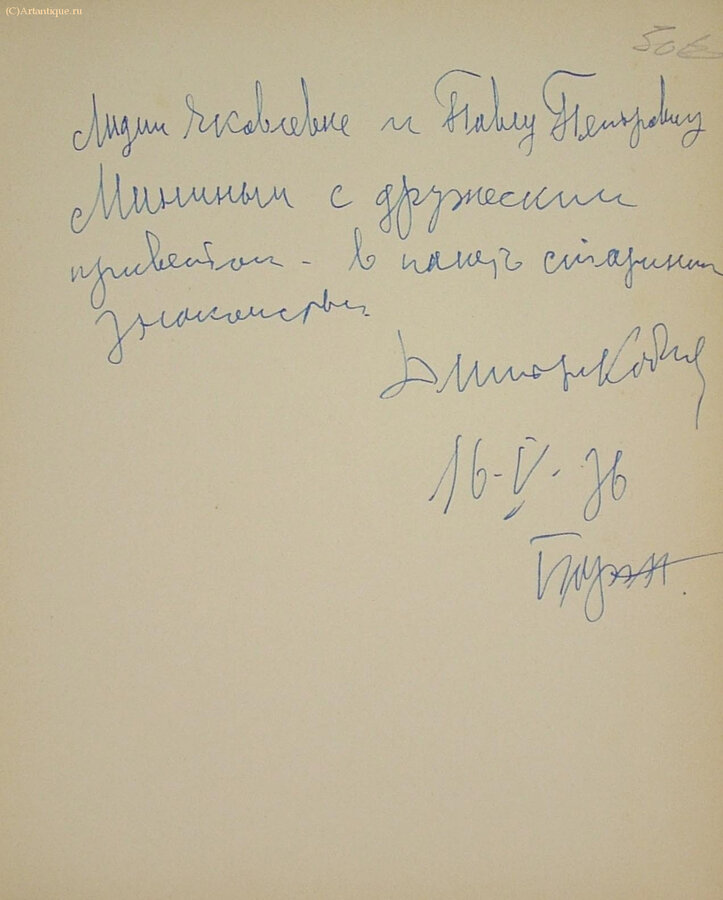 (C)Artantique.ru
Лидии Яковлевне и Павлу Петровичу
Мининым с дружеским
приветом - в память старинного
знакомства.
16-V-76